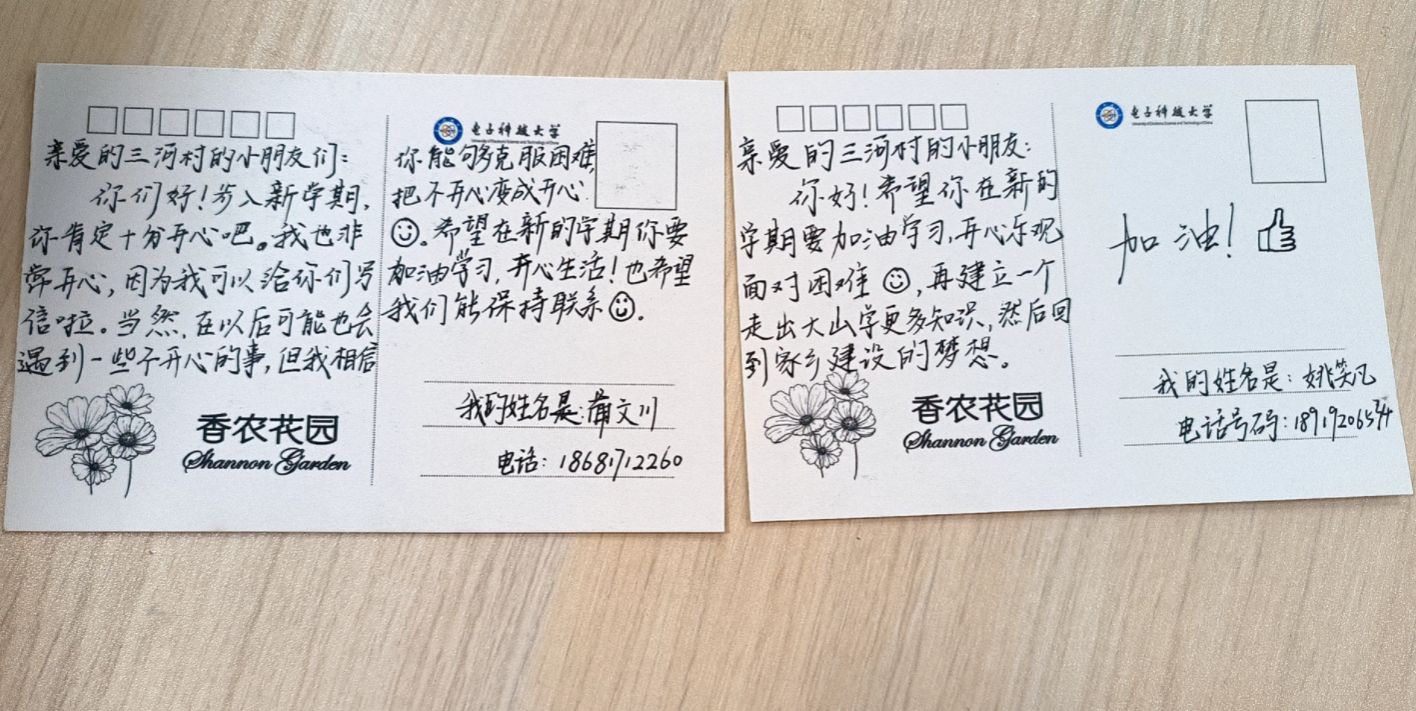 亲爱的三河村的小朋友们：
你们好！步入新学期，
你肯定十分开心吧。我也非
常开心，因为我可以给你们写
信啦。当然，在以后可能也会
遇到一些不开心的事，但我相信
香农花园
Shannon Garden
电子科技大学
University of Electronic Science and Technology of China
你能够克服困难，
把不开心变成开心
☺。希望在新的学期你要
加油学习，开心生活！也希望
我们能保持联系☺.
我的姓名是：蒲文川
电话：18681712260
亲爱的三河村的小朋友：
你好！希望你在新的
学期要加油学习，开心乐观
面对困难☺，再建立一个
走出大山学更多知识，然后回
到家乡建设的梦想。
香农花园
Shannon Garden
电子科技大学
University of Electronic Science and Technology of China
加油！
我的姓名是：姚笑凡
电话号码：18919206534